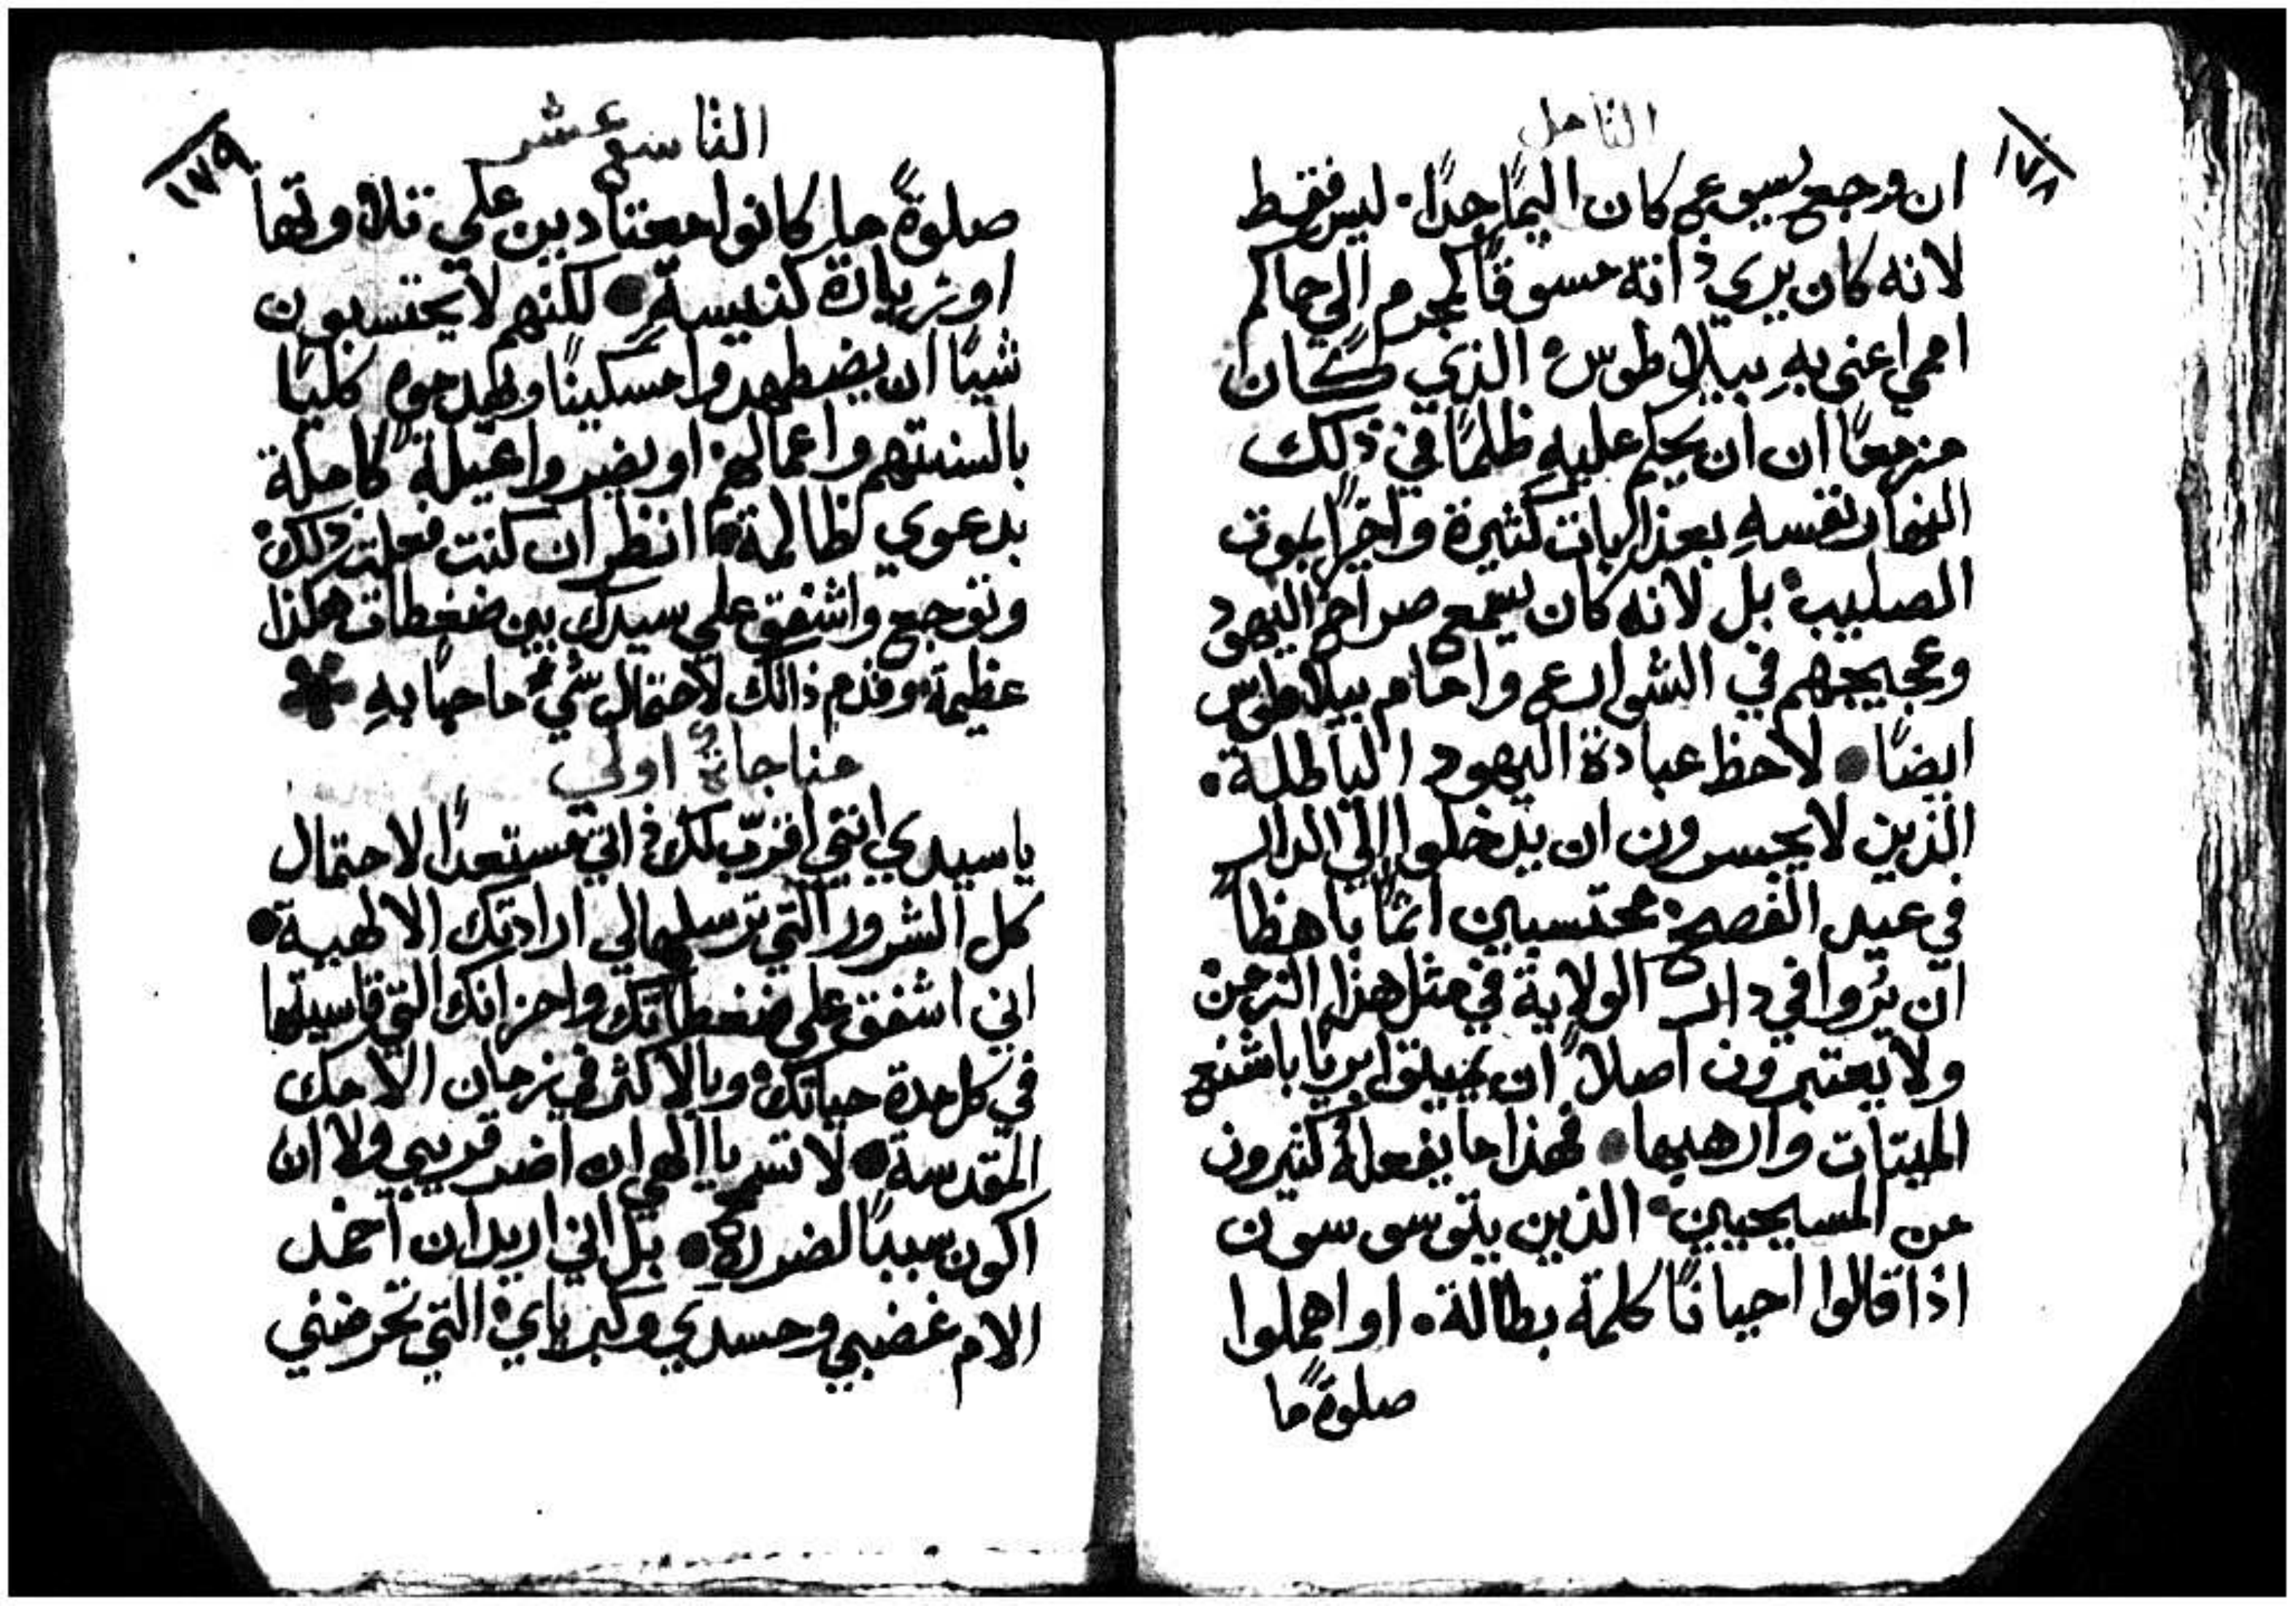 ١٧٨
التامل
ان وجع يسوع كان اليمًا جدًا. ليس فقط
لانه كان يري ذاته مسوقًا كمجرم الي حاكم
اممي اعني به بيلاطوس الذي كان
مزمعًا ان يحكم عليهِ ظلمًا في ذلك
النهار نفسهِ بعذابات كثيرة واخيرًا بموت
الصليب بل لانه كان يسمع صراخ اليهود
وعجيجهم في الشوارع وامام بيلاطوس
ايضًا • لاحظ عبادة اليهود الباطلة.
الذين لا يجسرون ان يدخلوا الي الدار
في عيد الفصح محتسبين اثمًا باهظًا
ان يروا في دار الولاية في مثل هذا الزمن
ولا يعتبرون اصلاً ان يميتوا بريًا باشنع
الميتات وارهبها • فهذا ما يفعلهُ كثيرون
من المسيحيين • الذين يتوسوسون
اذا قالوا احيانًا كلمة بطالة. او اهملوا
صلوةً ما
١٧٩
التاسع عشر
صلوةً ما كانوا معتادين علي تلاوتها
او زيارة كنيسة • لكنهم لا يحتسبون
شيًا ان يضطهدوا مسكينًا ويهدموه كليًا
بالسنتهم واعمالهم او يضروا عيلةً كاملة
بدعوي ظالمة • انظر ان كنت فعلت ذلك
وتوجع واشفق علي سيدك بين ضغطات هكذا
عظيمة وقدم ذاتك لاحتمال شيءٍ ما حبًا بهِ *
مناجاة اولي
يا سيدي انني اقرّب لك ذاتي مستعدًا لاحتمال
كل الشرور التي ترسلها لي ارادتك الالهية •
اني اشفق علي ضغطاتك واحزانك التي قاسيتها
في كل مدة حياتك وبالاكثر في زمان الامك
المقدسة • لا تسمح يا الهي ان اضر قريبي ولا ان
اكون سببًا لضرره • بل اني اريد ان اخمد
الام غضبي وحسدي وكبرياي التي تحرضني